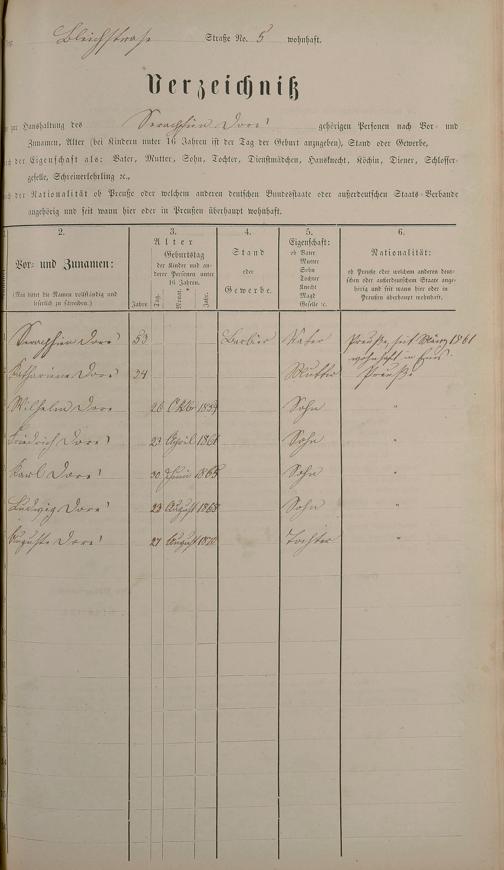 Bleichstrasse Straße No. 5 wohnhaft.
Verzeichniß
zur Haushaltung des Seraphin Doré gehörigen Personen nach Vor- und
Zunamen, Alter (bei Kindern unter 16 Jahren ist der Tag der Geburt anzugeben), Stand oder Gewerbe,
der Eigenschaft als: Vater, Mutter, Sohn, Tochter, Dienstmädchen, Hausknecht, Köchin, Diener, Schlosser-
geselle, Schreinerlehrling ꝛc.,
der Nationalität ob Preuße oder welchem anderen deutschen Bundesstaate oder außerdeutschen Staats-Verbande
angehörig und seit wann hier oder in Preußen überhaupt wohnhaft.
2.
Vor- und Zunamen:
(Man bittet die Namen vollständig und
leserlich zu schreiben.)
3.
Alter
Geburtstag
der Kinder und an-
derer Personen unter
16 Jahren.
Jahre Tag. Monat. Jahr.
4.
Stand
oder
Gewerbe.
5.
Eigenschaft:
ob Vater
Mutter
Sohn
Tochter
Knecht
Magd
Geselle ꝛc.
6.
Nationalität:
ob Preuße oder welchem anderen deut-
schen oder außerdeutschen Staate ange-
hörig und seit wann hier oder in
Preußen überhaupt wohnhaft.
Seraphin Doré 53 Barbier Vater Preuße, seit März 1861
wohnhaft in Ems.
Katharine Doré 24 Mutter Preuße
Wilhelm Doré 26 Oktbr 1859 Sohn "
Friedrich Doré 23 April 1861 Sohn "
Karl Doré 30 Juni 1865 Sohn "
Ludwig Doré 23 August 1868 Sohn "
Auguste Doré 27 August 1870 Tochter "